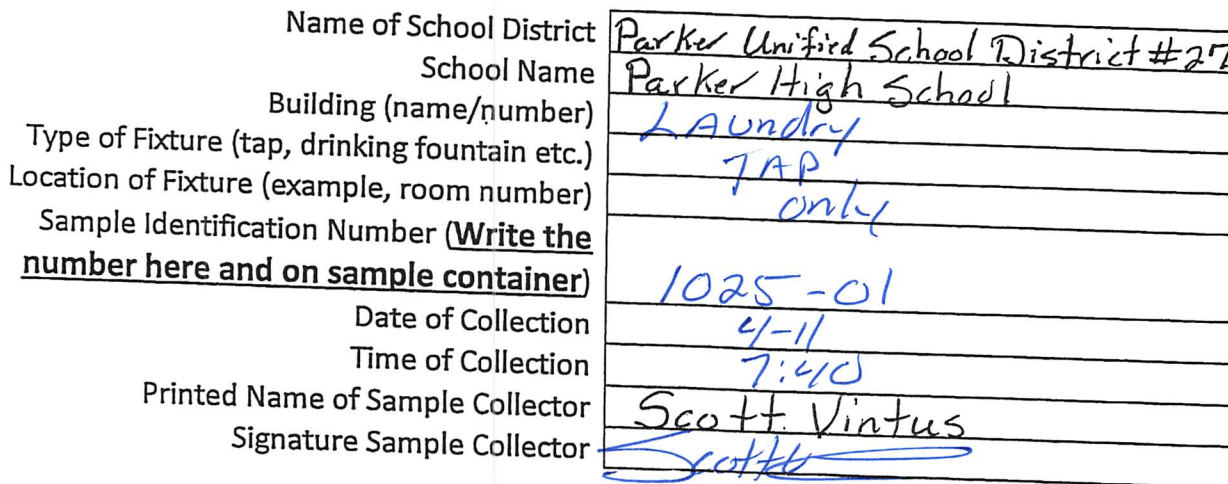 Name of School District Parker Unified School District #27
School Name Parker High School
Building (name/number) LAundry
Type of Fixture (tap, drinking fountain etc.) TAP
Location of Fixture (example, room number) only
Sample Identification Number (Write the
number here and on sample container) 1025-01
Date of Collection 4-11
Time of Collection 7:40
Printed Name of Sample Collector Scott Vintus
Signature Sample Collector